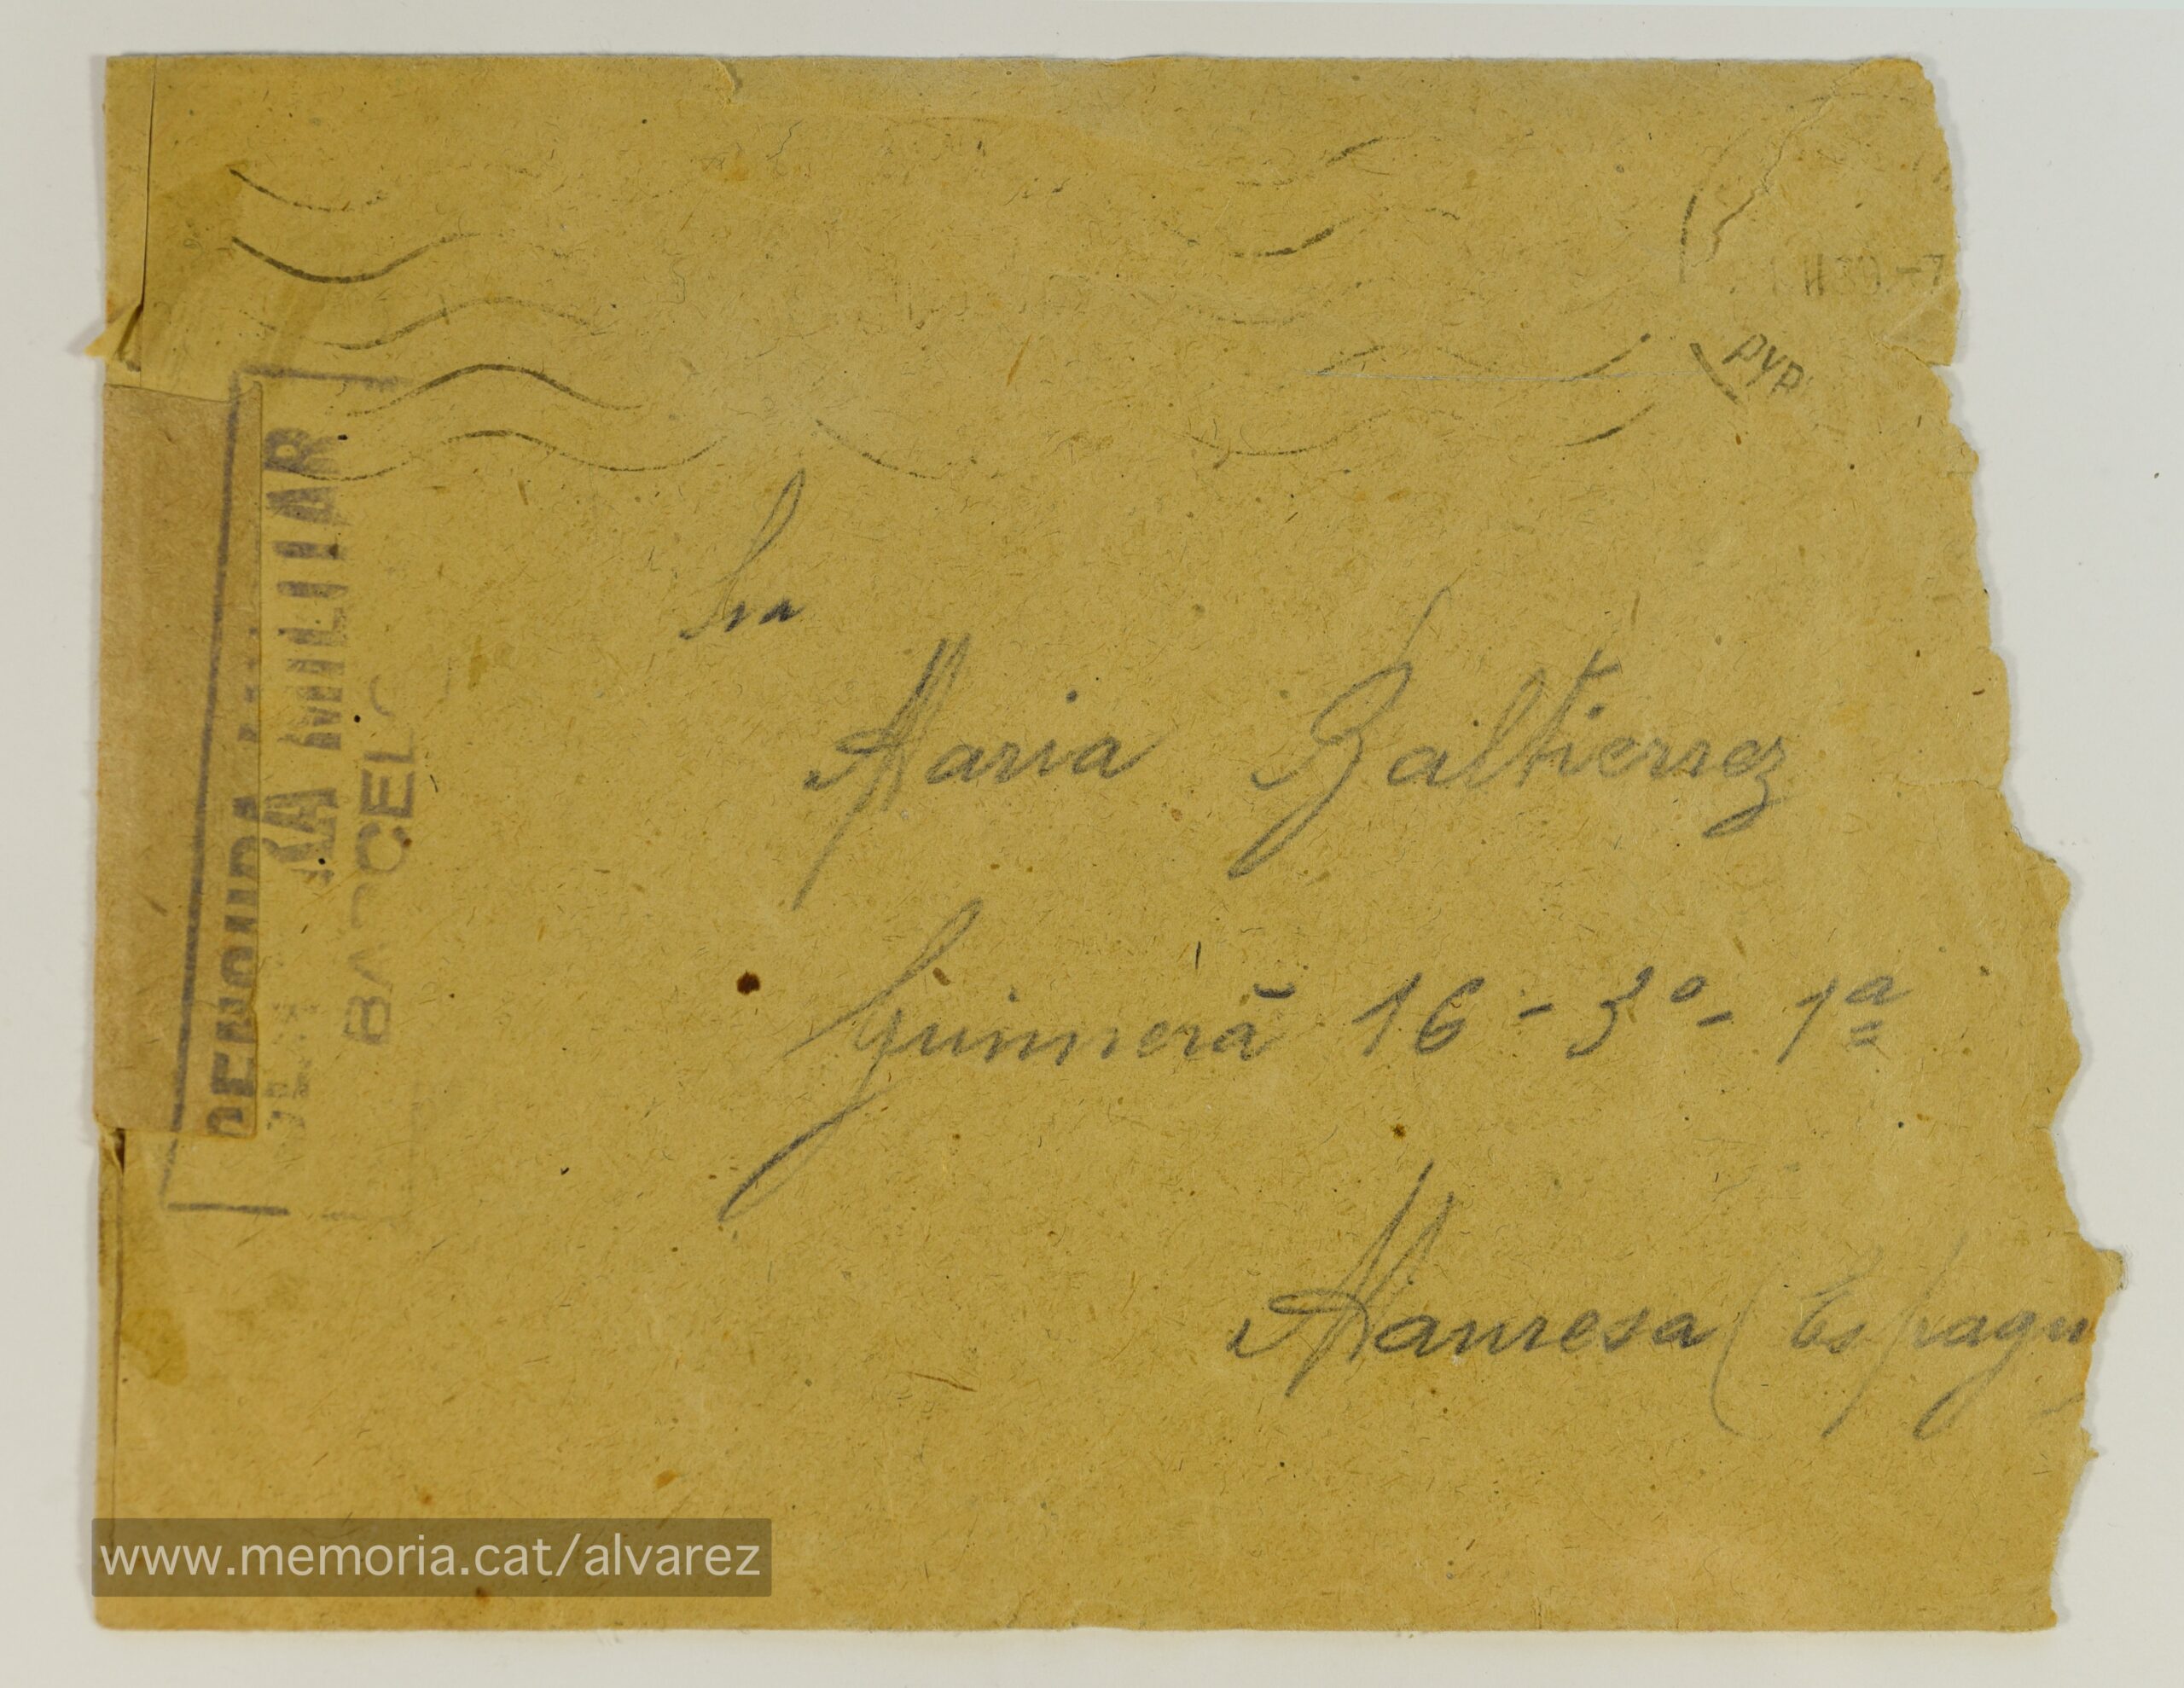 PYR
Sra
Maria Galtierrez
Guimerà 16 - 3º - 1ª
Manresa (Espagn
CENSURA
MILITAR
BARCELO
www.memoria.cat/alvarez